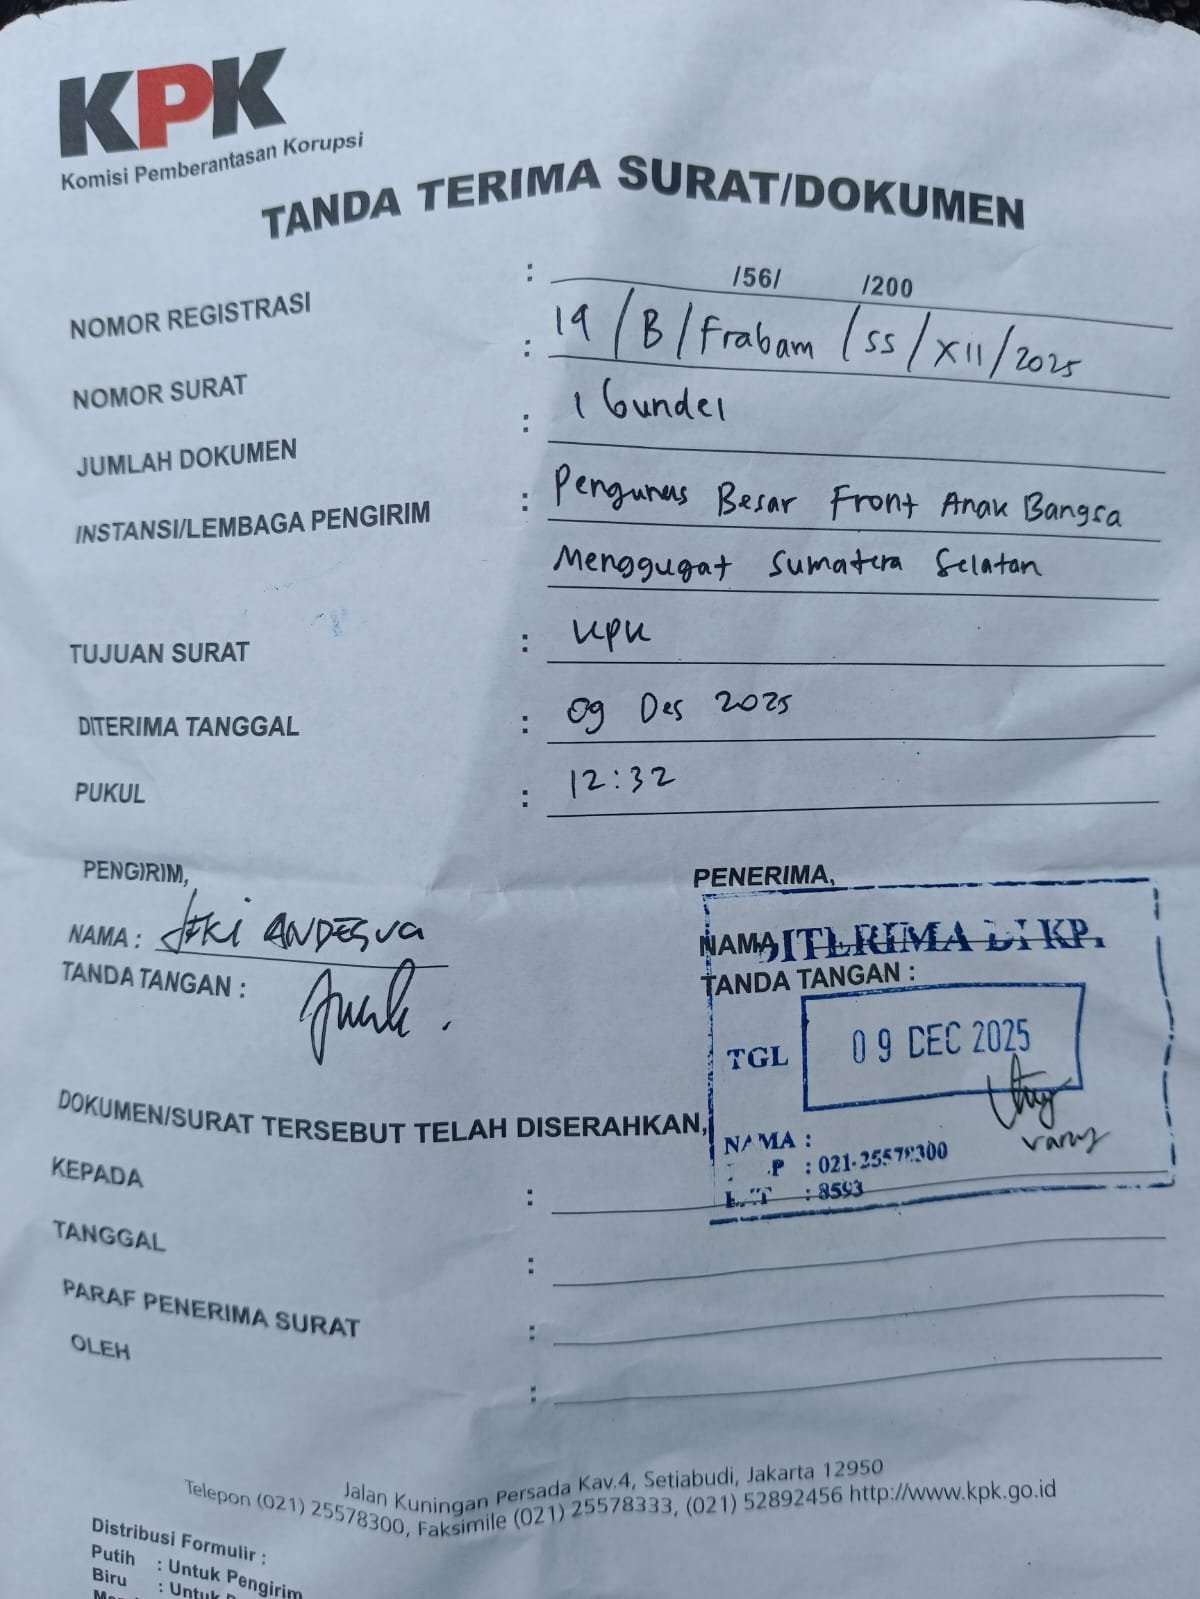 KPK
Komisi Pemberantasan Korupsi
TANDA TERIMA SURAT/DOKUMEN
NOMOR REGISTRASI : /56/ /200
NOMOR SURAT : 19/B/Frabam/SS/XII/2025
JUMLAH DOKUMEN : 1 bundel
INSTANSI/LEMBAGA PENGIRIM : Pengurus Besar Front Anak Bangsa
Menggugat Sumatera Selatan
TUJUAN SURAT : KPK
DITERIMA TANGGAL : 09 Des 2025
PUKUL : 12:32
PENGIRIM,
NAMA :
TANDA TANGAN :
PENERIMA,
NAMA DITERIMA DI KP
TANDA TANGAN :
TGL 09 DEC 2025
NAMA :
: 021-25578300
: 8593
DOKUMEN/SURAT TERSEBUT TELAH DISERAHKAN,
KEPADA :
TANGGAL :
PARAF PENERIMA SURAT :
OLEH :
Jalan Kuningan Persada Kav.4, Setiabudi, Jakarta 12950
Telepon (021) 25578300, Faksimile (021) 25578333, (021) 52892456 http://www.kpk.go.id
Distribusi Formulir :
Putih : Untuk Pengirim
Biru : Untuk